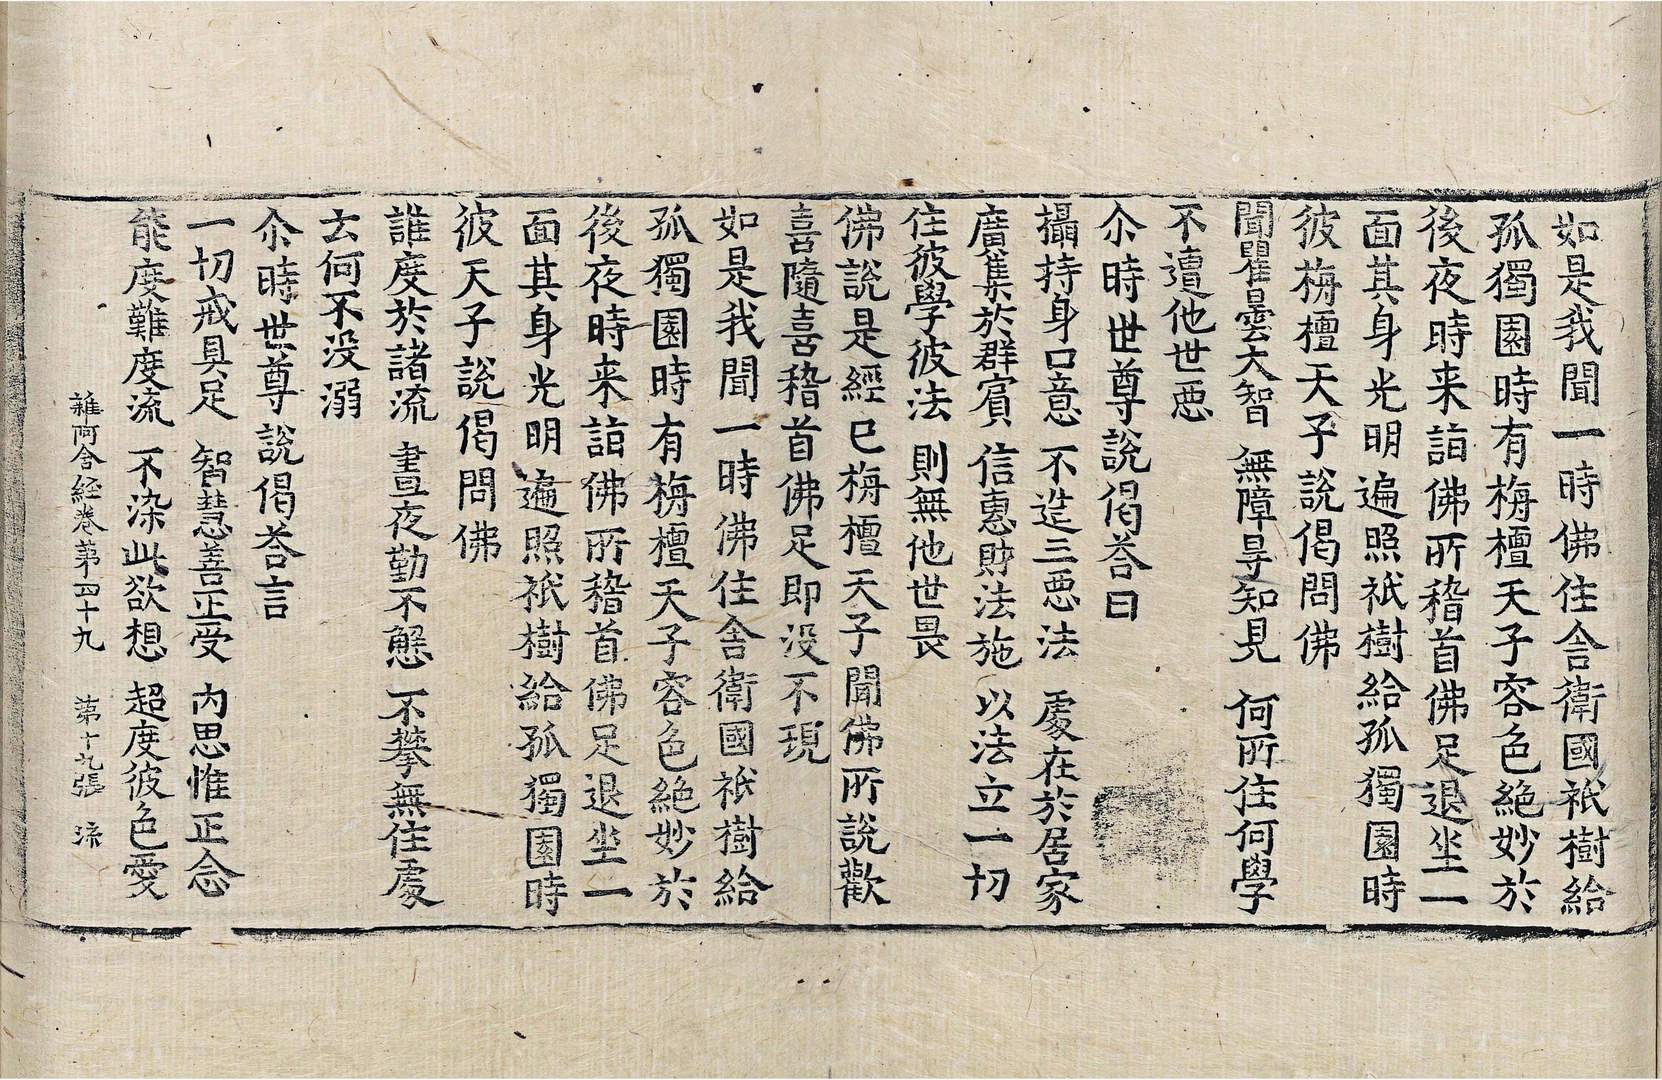 如是我聞一時佛住舍衛國祇樹給
孤獨園時有栴檀天子容色絶妙於
後夜時来詣佛所稽首佛足退坐一
面其身光明遍照祇樹給孤獨園時
彼栴檀天子說偈問佛
聞瞿曇大智 無障㝵知見 何所住何學
不遭他世惡
尒時世尊說偈荅曰
攝持身口意 不造三惡法 處在於居家
廣集於群賓 信惠財法施 以法立一切
住彼學彼法 則無他世畏
佛說是經已栴檀天子聞佛所說歡
喜隨喜稽首佛足即没不現
如是我聞一時佛住舍衛國祇樹給
孤獨園時有栴檀天子容色絶妙於
後夜時来詣佛所稽首佛足退坐一
面其身光明遍照祇樹給孤獨園時
彼天子說偈問佛
誰度於諸流 晝夜勤不懈 不攀無住處
云何不没溺
尒時世尊說偈荅言
一切戒具足 智慧善正受 内思惟正念
能度難度流 不染此欲想 超度彼色愛
雜阿含經卷第四十九 第十九張 流